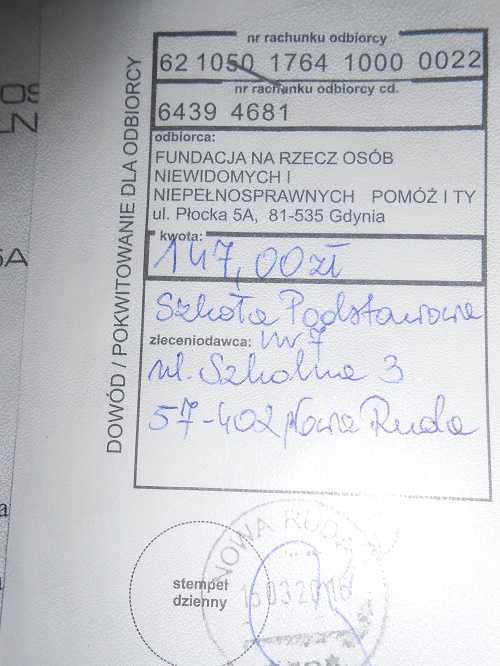 DOWÓD / POKWITOWANIE DLA ODBIORCY
nr rachunku odbiorcy
62 1050 1764 1000 0022
nr rachunku odbiorcy cd.
6439 4681
odbiorca:
FUNDACJA NA RZECZ OSÓB
NIEWIDOMYCH I
NIEPEŁNOSPRAWNYCH POMÓŻ I TY
ul. Płocka 5A, 81-535 Gdynia
kwota:
147,00 zł
Szkoła Podstawowa
zleceniodawca: nr 7
ul. Szkolna 3
57-402 Nowa Ruda
NOWA RUDA
stempel
dzienny